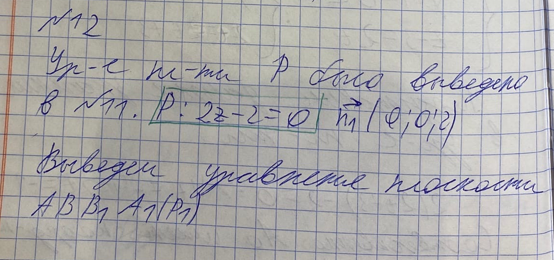 №12
Ур-е пл-ти P было выведено
в №11. P: 2z-2=0 n₁ (0;0;2)
Выведем уравнение плоскости
ABB₁A₁(P₁)